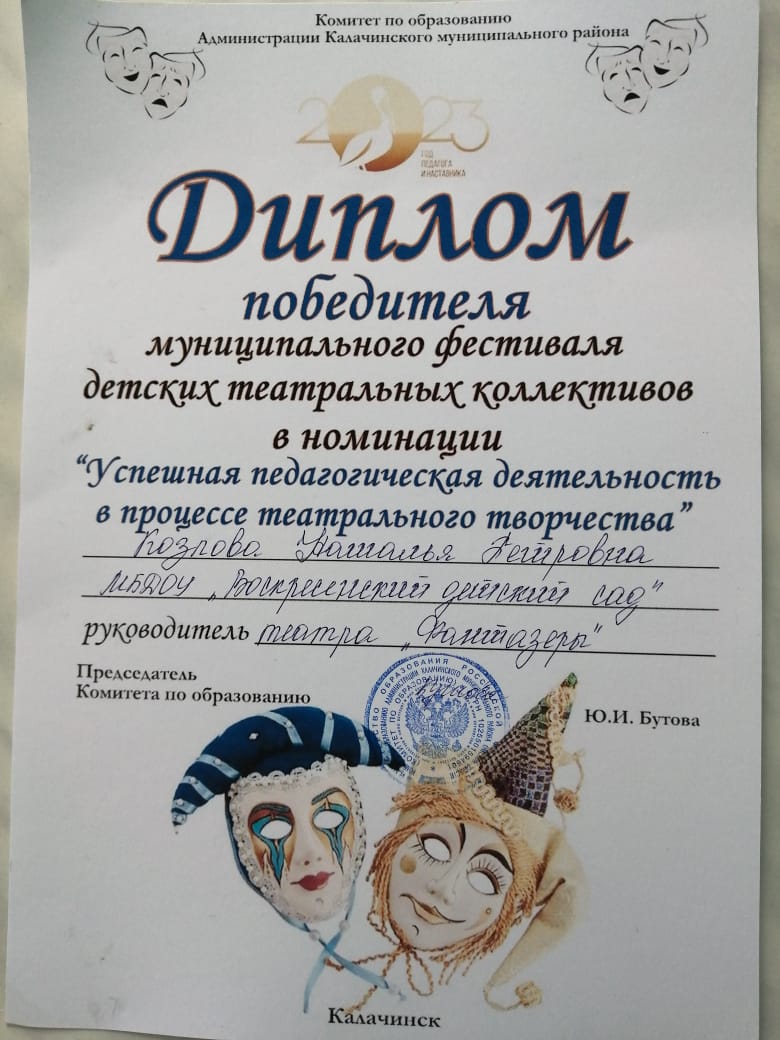 Комитет по образованию
Администрации Калачинского муниципального района
2023
ГОД
ПЕДАГОГА
И НАСТАВНИКА
Диплом
победителя
муниципального фестиваля
детских театральных коллективов
в номинации
“Успешная педагогическая деятельность
в процессе театрального творчества”
Козлова Наталья Петровна
МБДОУ „Воскресенский детский сад"
руководитель театра „Фантазеры"
Председатель
Комитета по образованию
Ю.И. Бутова
Калачинск